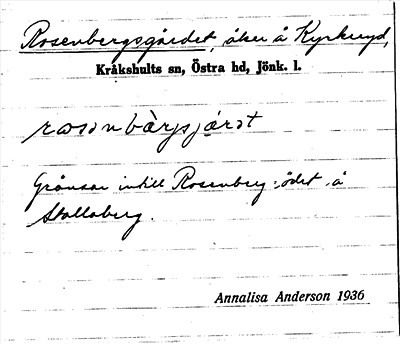 Rosenbergsgärdet, åker å Kyrkeryd,
Kråkshults sn, Östra hd, Jönk. l.
rosənbàrjsjǽrət
Gränsar intill Rosenberg, ödet, å
Skallaberg.
Annalisa Anderson 1936